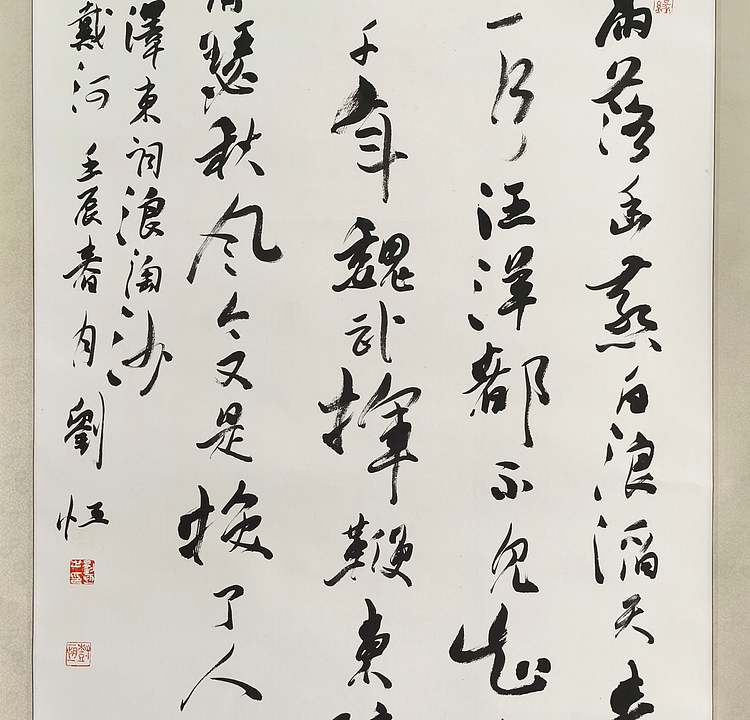 雨落幽燕白浪滔天秦
一片汪洋都不見知
千年魏武揮鞭東臨
瑟秋風今又是換了人
澤東詞浪淘沙
戴河 壬辰春月 劉恒